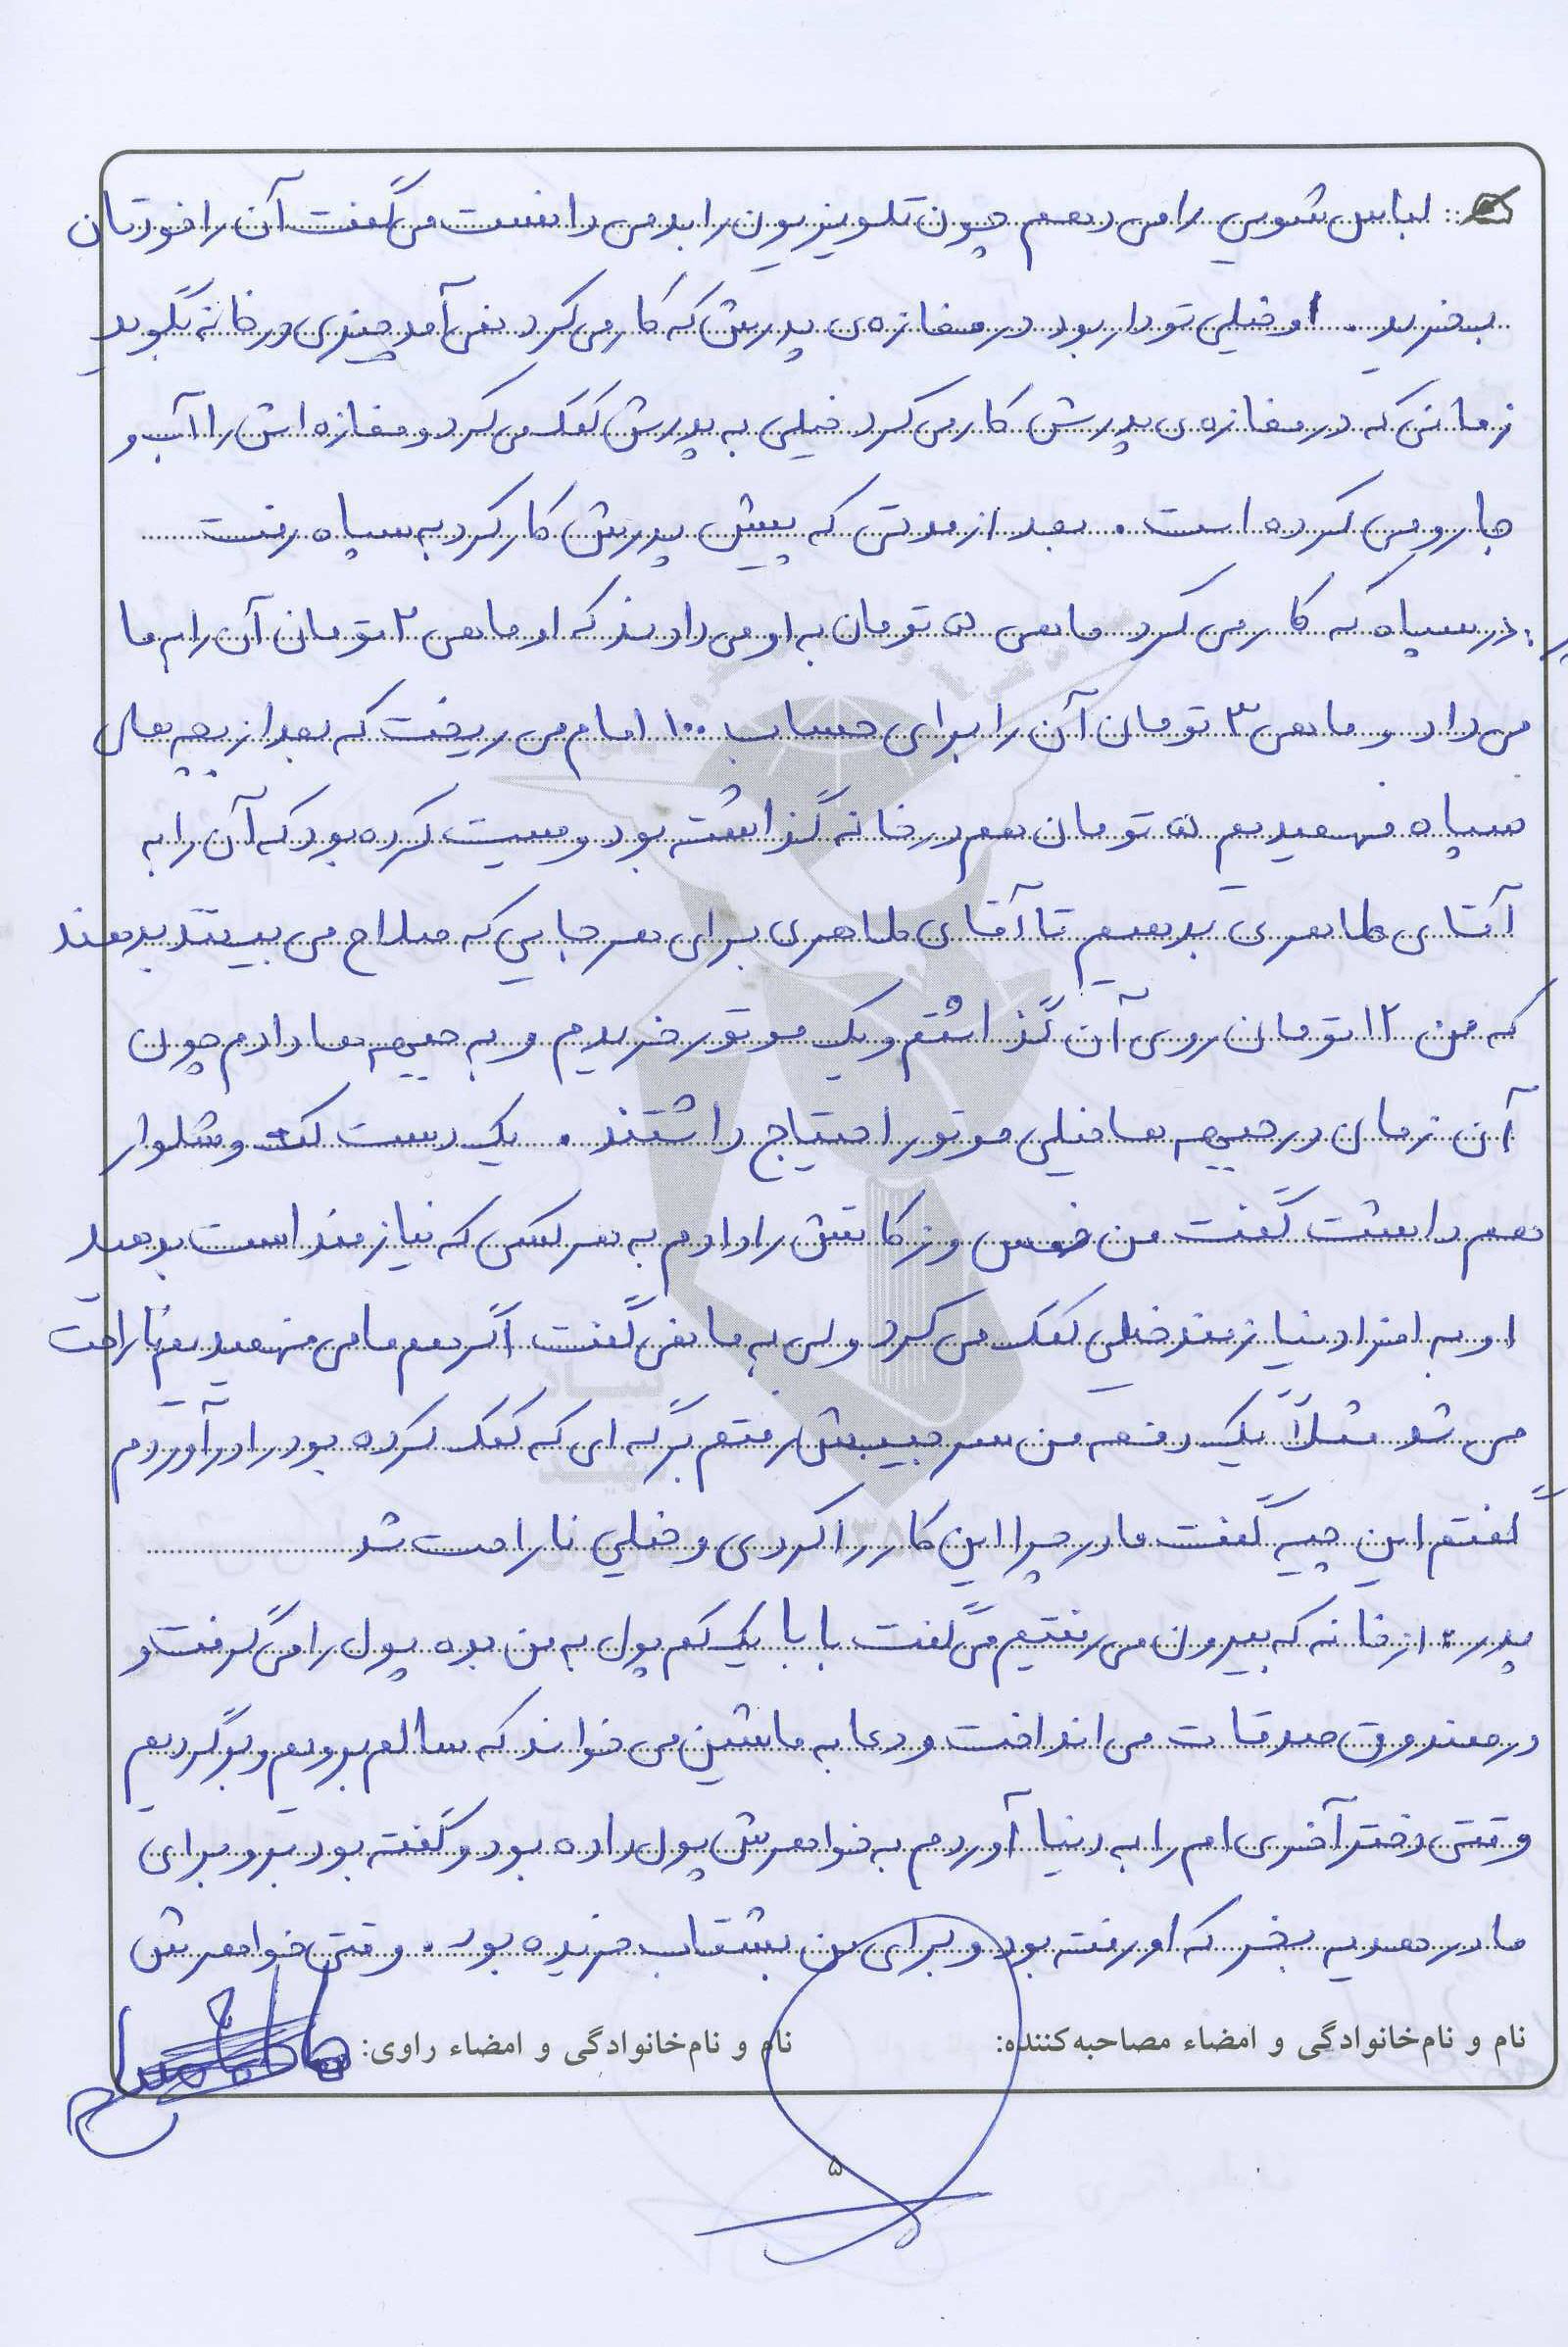 لباس شویی را می دهم چون تلویزیون را بد می دانست می گفت آن را خودتان
بخرید. او خیلی تودار بود در مغازه ی پدرش که کار می کرد نمی آمد چیزی در خانه بگوید
زمانی که در مغازه ی پدرش کار می کرد خیلی به پدرش کمک می کرد و مغازه اش را آب و
جارو می کرده است. بعد از مدتی که پیش پدرش کار کرد به سپاه رفت
در سپاه که کار می کرد ماهی ۵ تومان به او می دادند که او ماهی ۲ تومان آن را به ما
می داد و ماهی ۳ تومان آن را برای حساب ۱۰۰ امام می ریخت که بعد از بچه های
سپاه فهمیدیم ۵ تومان هم در خانه گذاشته بود وصیت کرده بود که آن را به
آقای طاهری بدهیم تا آقای طاهری برای هر جایی که صلاح می بینند بدهند
که من ۱۲ تومان روی آن گذاشتم و یک موتور خریدم و به جبهه ها دادم چون
آن زمان در جبهه ها خیلی موتور احتیاج داشتند. یک دست کت و شلوار
هم داشت گفت من خمس و زکاتش را دادم به هر کسی که نیازمند است بدهید
او به افراد نیازمند خیلی کمک می کرد ولی به ما نمی گفت اگر هم ما می فهمیدیم ناراحت
می شد مثلاً یک دفعه من سر جیبش رفتم برگه ای که کمک کرده بود را در آوردم
گفتم این چیه گفت مادر چرا این کار را کردی و خیلی ناراحت شد
پدر: از خانه که بیرون می رفتیم می گفت بابا یک کم پول به من بده پول را می گرفت و
در صندوق صدقات می انداخت و دعا به ماشین می خواند که سالم برویم و برگردیم
وقتی دختر آخری ام را به دنیا آوردم به خواهرش پول داده بود و گفته بود برو برای
مادر هدیه بخر که او رفته بود و برای من بشقاب خریده بود. وقتی خواهرش
نام و نام‌خانوادگی و امضاء مصاحبه‌کننده: نام و نام‌خانوادگی و امضاء راوی:
۵